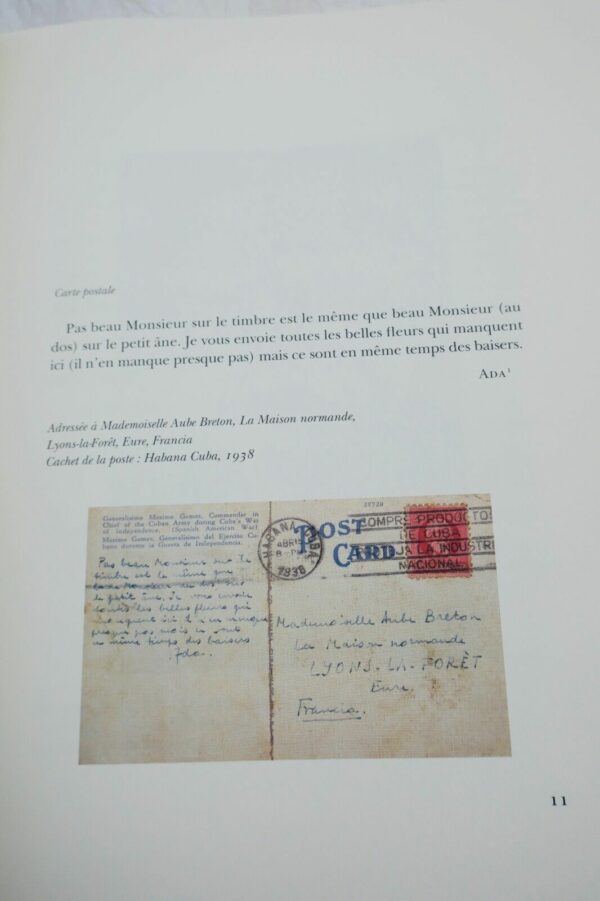 Carte postale
Pas beau Monsieur sur le timbre est le même que beau Monsieur (au
dos) sur le petit âne. Je vous envoie toutes les belles fleurs qui manquent
ici (il n'en manque presque pas) mais ce sont en même temps des baisers.
ADA¹
Adressée à Mademoiselle Aube Breton, La Maison normande,
Lyons-la-Forêt, Eure, Francia
Cachet de la poste : Habana Cuba, 1938
Generalisimo Maximo Gomez, Commander in
Chief of the Cuban Army during Cuba's War
of Independence. (Spanish American War)
Maximo Gomez, Generalisimo del Ejercito Cu-
bano durante la Guerra de Independencia.
Pas beau Monsieur sur le
timbre est le même que
beau Monsieur
le petit âne. Je vous envoie
toutes les belles fleurs qui
manquent ici il n'en manque
presque pas mais ce sont
en même temps des baisers
Ada.
POST
CARD
HABANA, CUBA.
ABR
8-PM
1938
COMPRE PRODUCTO
DE CUBA
LA INDUSTRI
NACIONAL
Mademoiselle Aube Breton
La Maison normande
LYONS-LA-FORÊT
Eure
Francia.
11